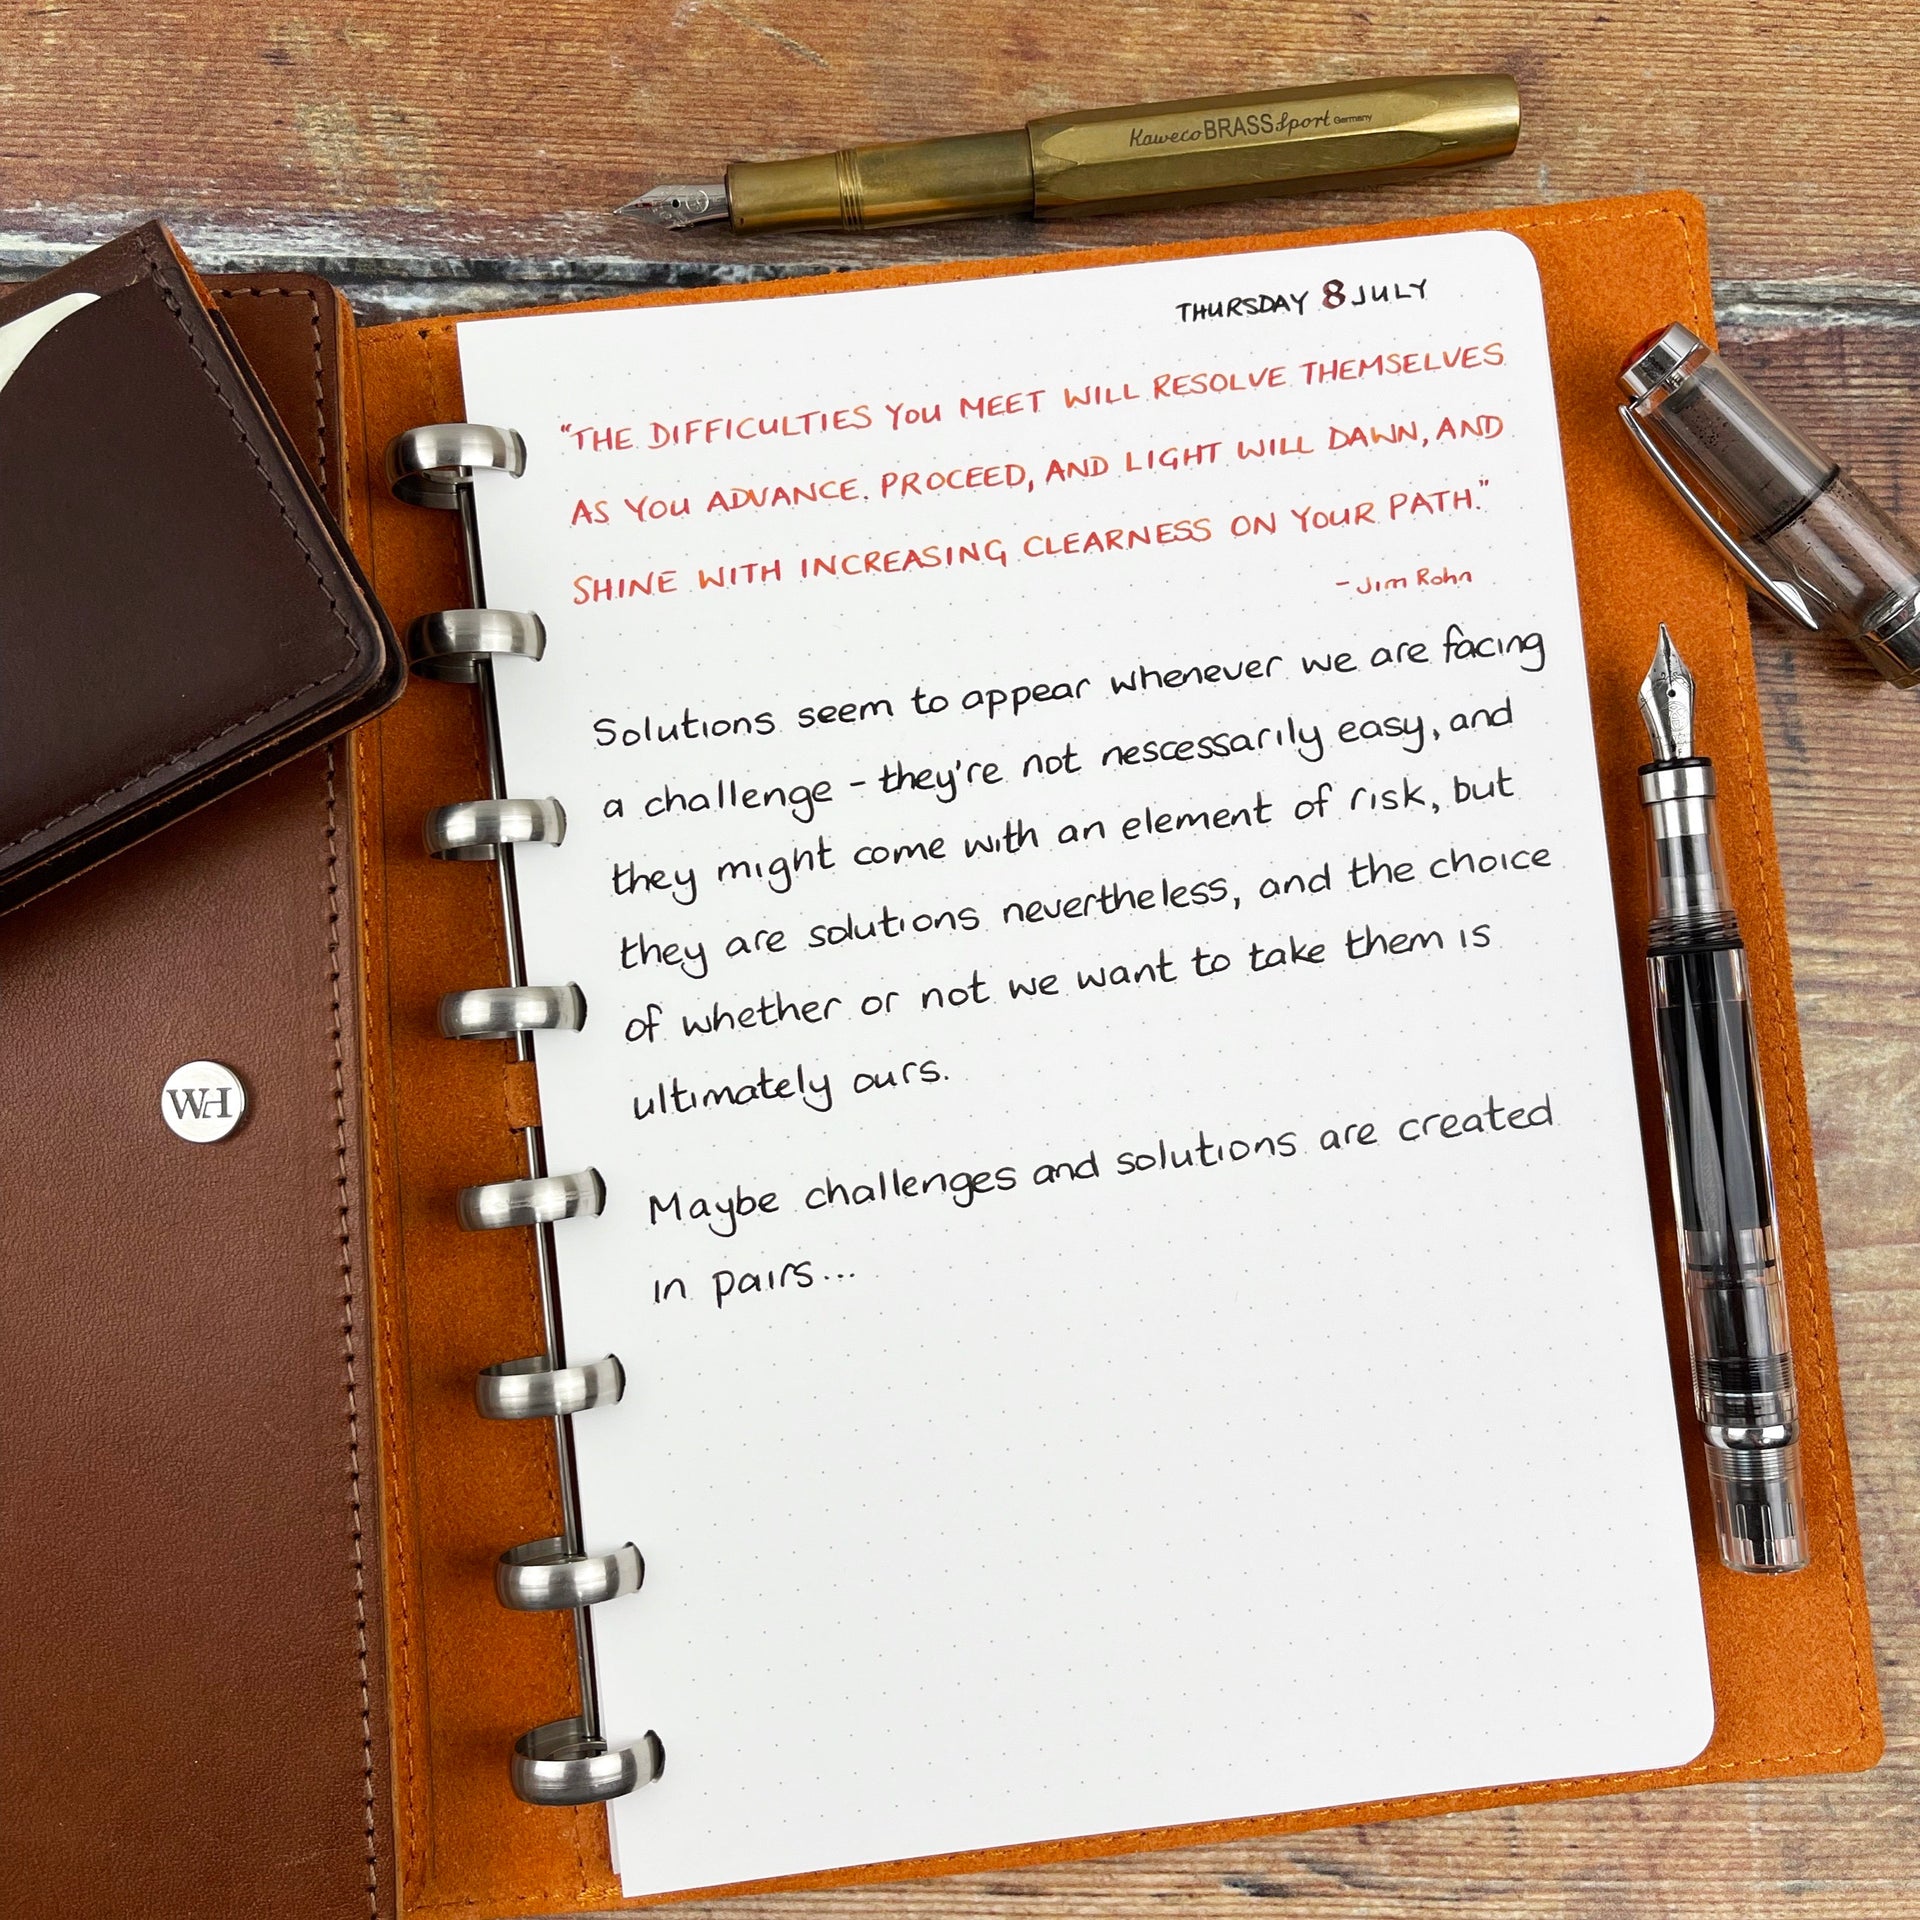 Kaweco BRASS Sport Germany
THURSDAY 8 JULY
"THE DIFFICULTIES YOU MEET WILL RESOLVE THEMSELVES
AS YOU ADVANCE. PROCEED, AND LIGHT WILL DAWN, AND
SHINE WITH INCREASING CLEARNESS ON YOUR PATH."
- Jim Rohn
Solutions seem to appear whenever we are facing
a challenge - they're not nescessarily easy, and
they might come with an element of risk, but
they are solutions nevertheless, and the choice
of whether or not we want to take them is
ultimately ours.
Maybe challenges and solutions are created
in pairs...
WH